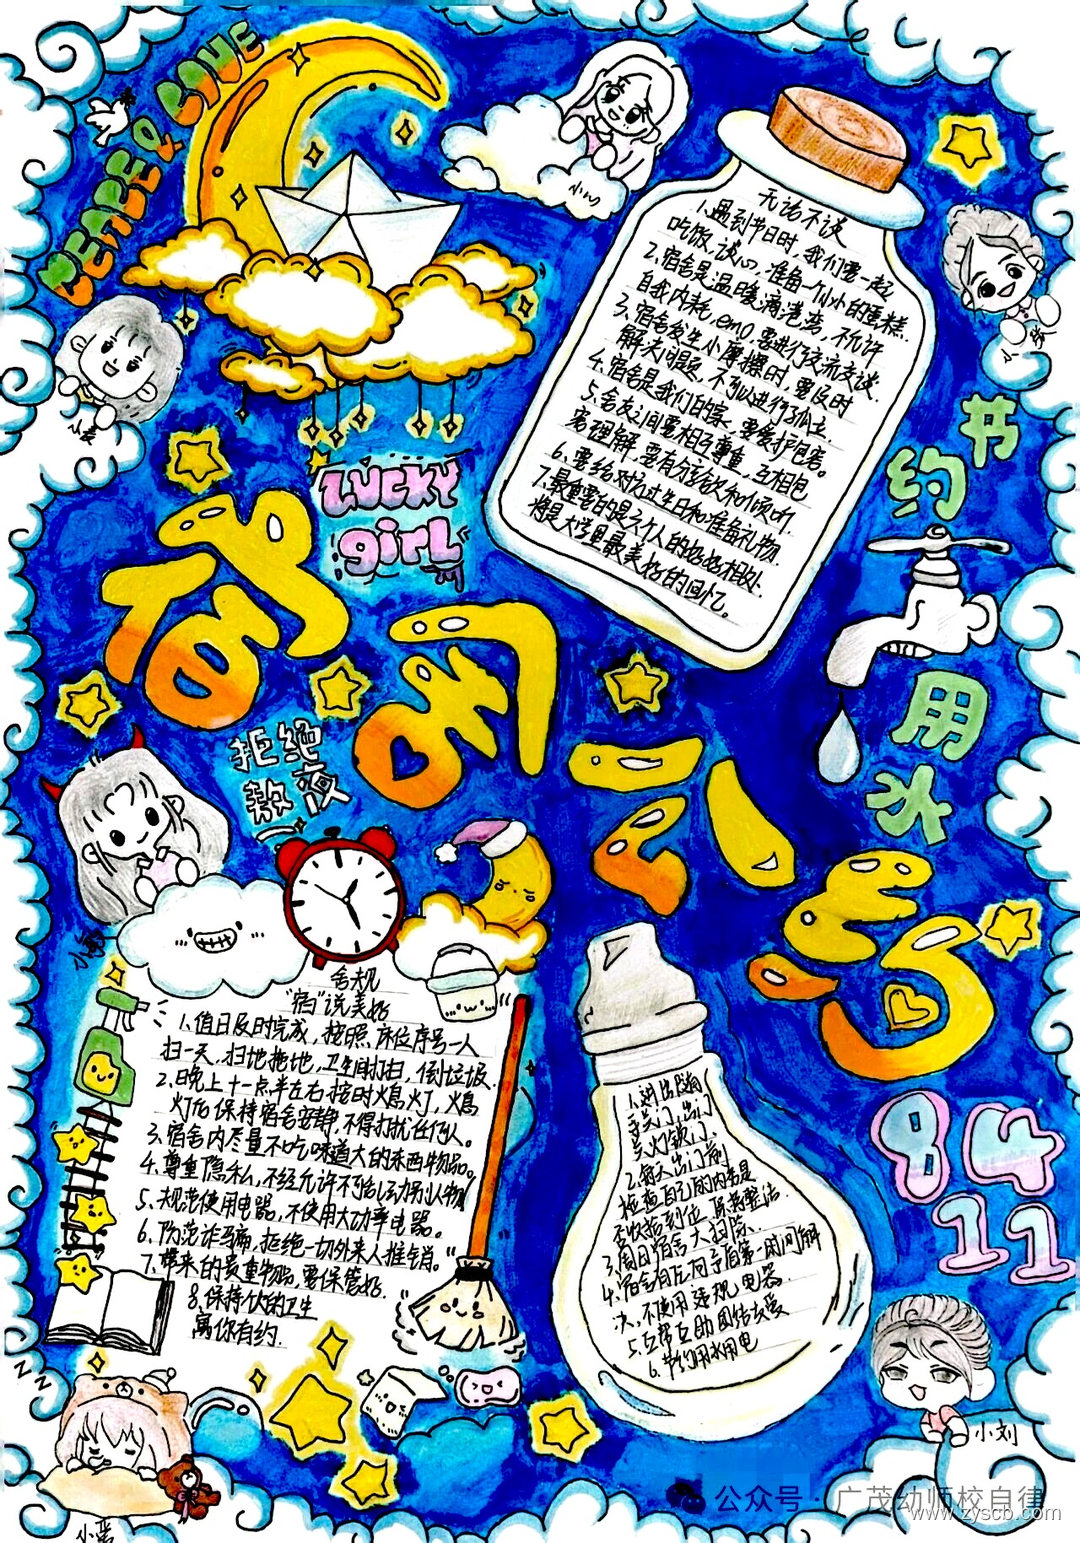 PEACE & LOVE
小小
无话不谈
1、遇到节日时，我们要一起
吃饭、谈心，准备一个小小的蛋糕.
2、宿舍是温暖滴港湾，不允许
自我内耗，emo，要进行交流交谈.
3、宿舍发生小摩擦时，要及时
解决问题，不可以进行孤立.
4、宿舍是我们的家，要爱护它.
5、舍友之间要相互尊重，互相包
容理解，要有分享欲和倾听.
6、要给对方过生日和准备礼物.
7、最重要的是六个人的好好相处.
将是大学里最美好的回忆。
小麦
LUCKY
girL
节
约
用
水
宿舍公约
拒绝
熬夜
舍规
“宿”说美好
1、值日及时完成，按照床位序号一人
扫一天，扫地拖地，卫生间打扫，倒垃圾.
2、晚上十一点半左右按时熄灯，熄
灯后保持宿舍安静，不得打扰任何人。
3、宿舍内尽量不吃味道大的东西物品。
4、尊重隐私，不经允许不可乱动别人物
5、规范使用电器，不使用大功率电器。
6、防范诈骗，拒绝一切外来人推销。”
7、带来的贵重物品，要保管好.
8、保持伙的卫生
寓你有约.
1、进出随
手关门，出门
关火锁门.
2、每天出门前
检查自己的内务是
否收拾到位，保持整洁.
3、周日宿舍大扫除.
4、宿舍有任何矛盾第一时间解
决，不使用违规电器.
5、互帮互助 团结友爱
6、节约用水用电
84
11
小刘
zzz
公众号 · 广茂幼师校自律
www.zyscb.com